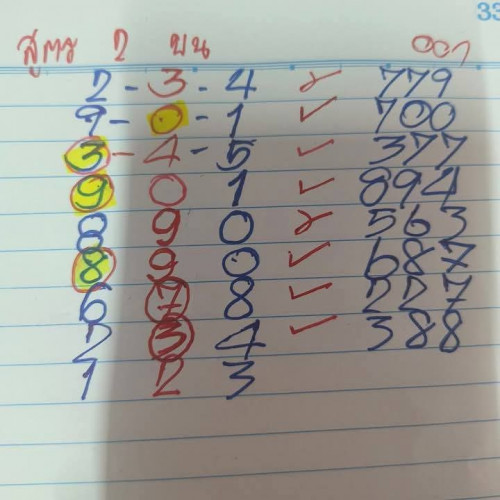 33
สูตร 2 บน ออก
2 - 3 - 4 ✓ 779
9 - 0 - 1 ✓ 700
3 - 4 - 5 ✓ 377
9 0 1 ✓ 894
8 9 0 ✓ 563
8 9 0 ✓ 687
6 7 8 ✓ 227
2 3 4 ✓ 388
1 2 3